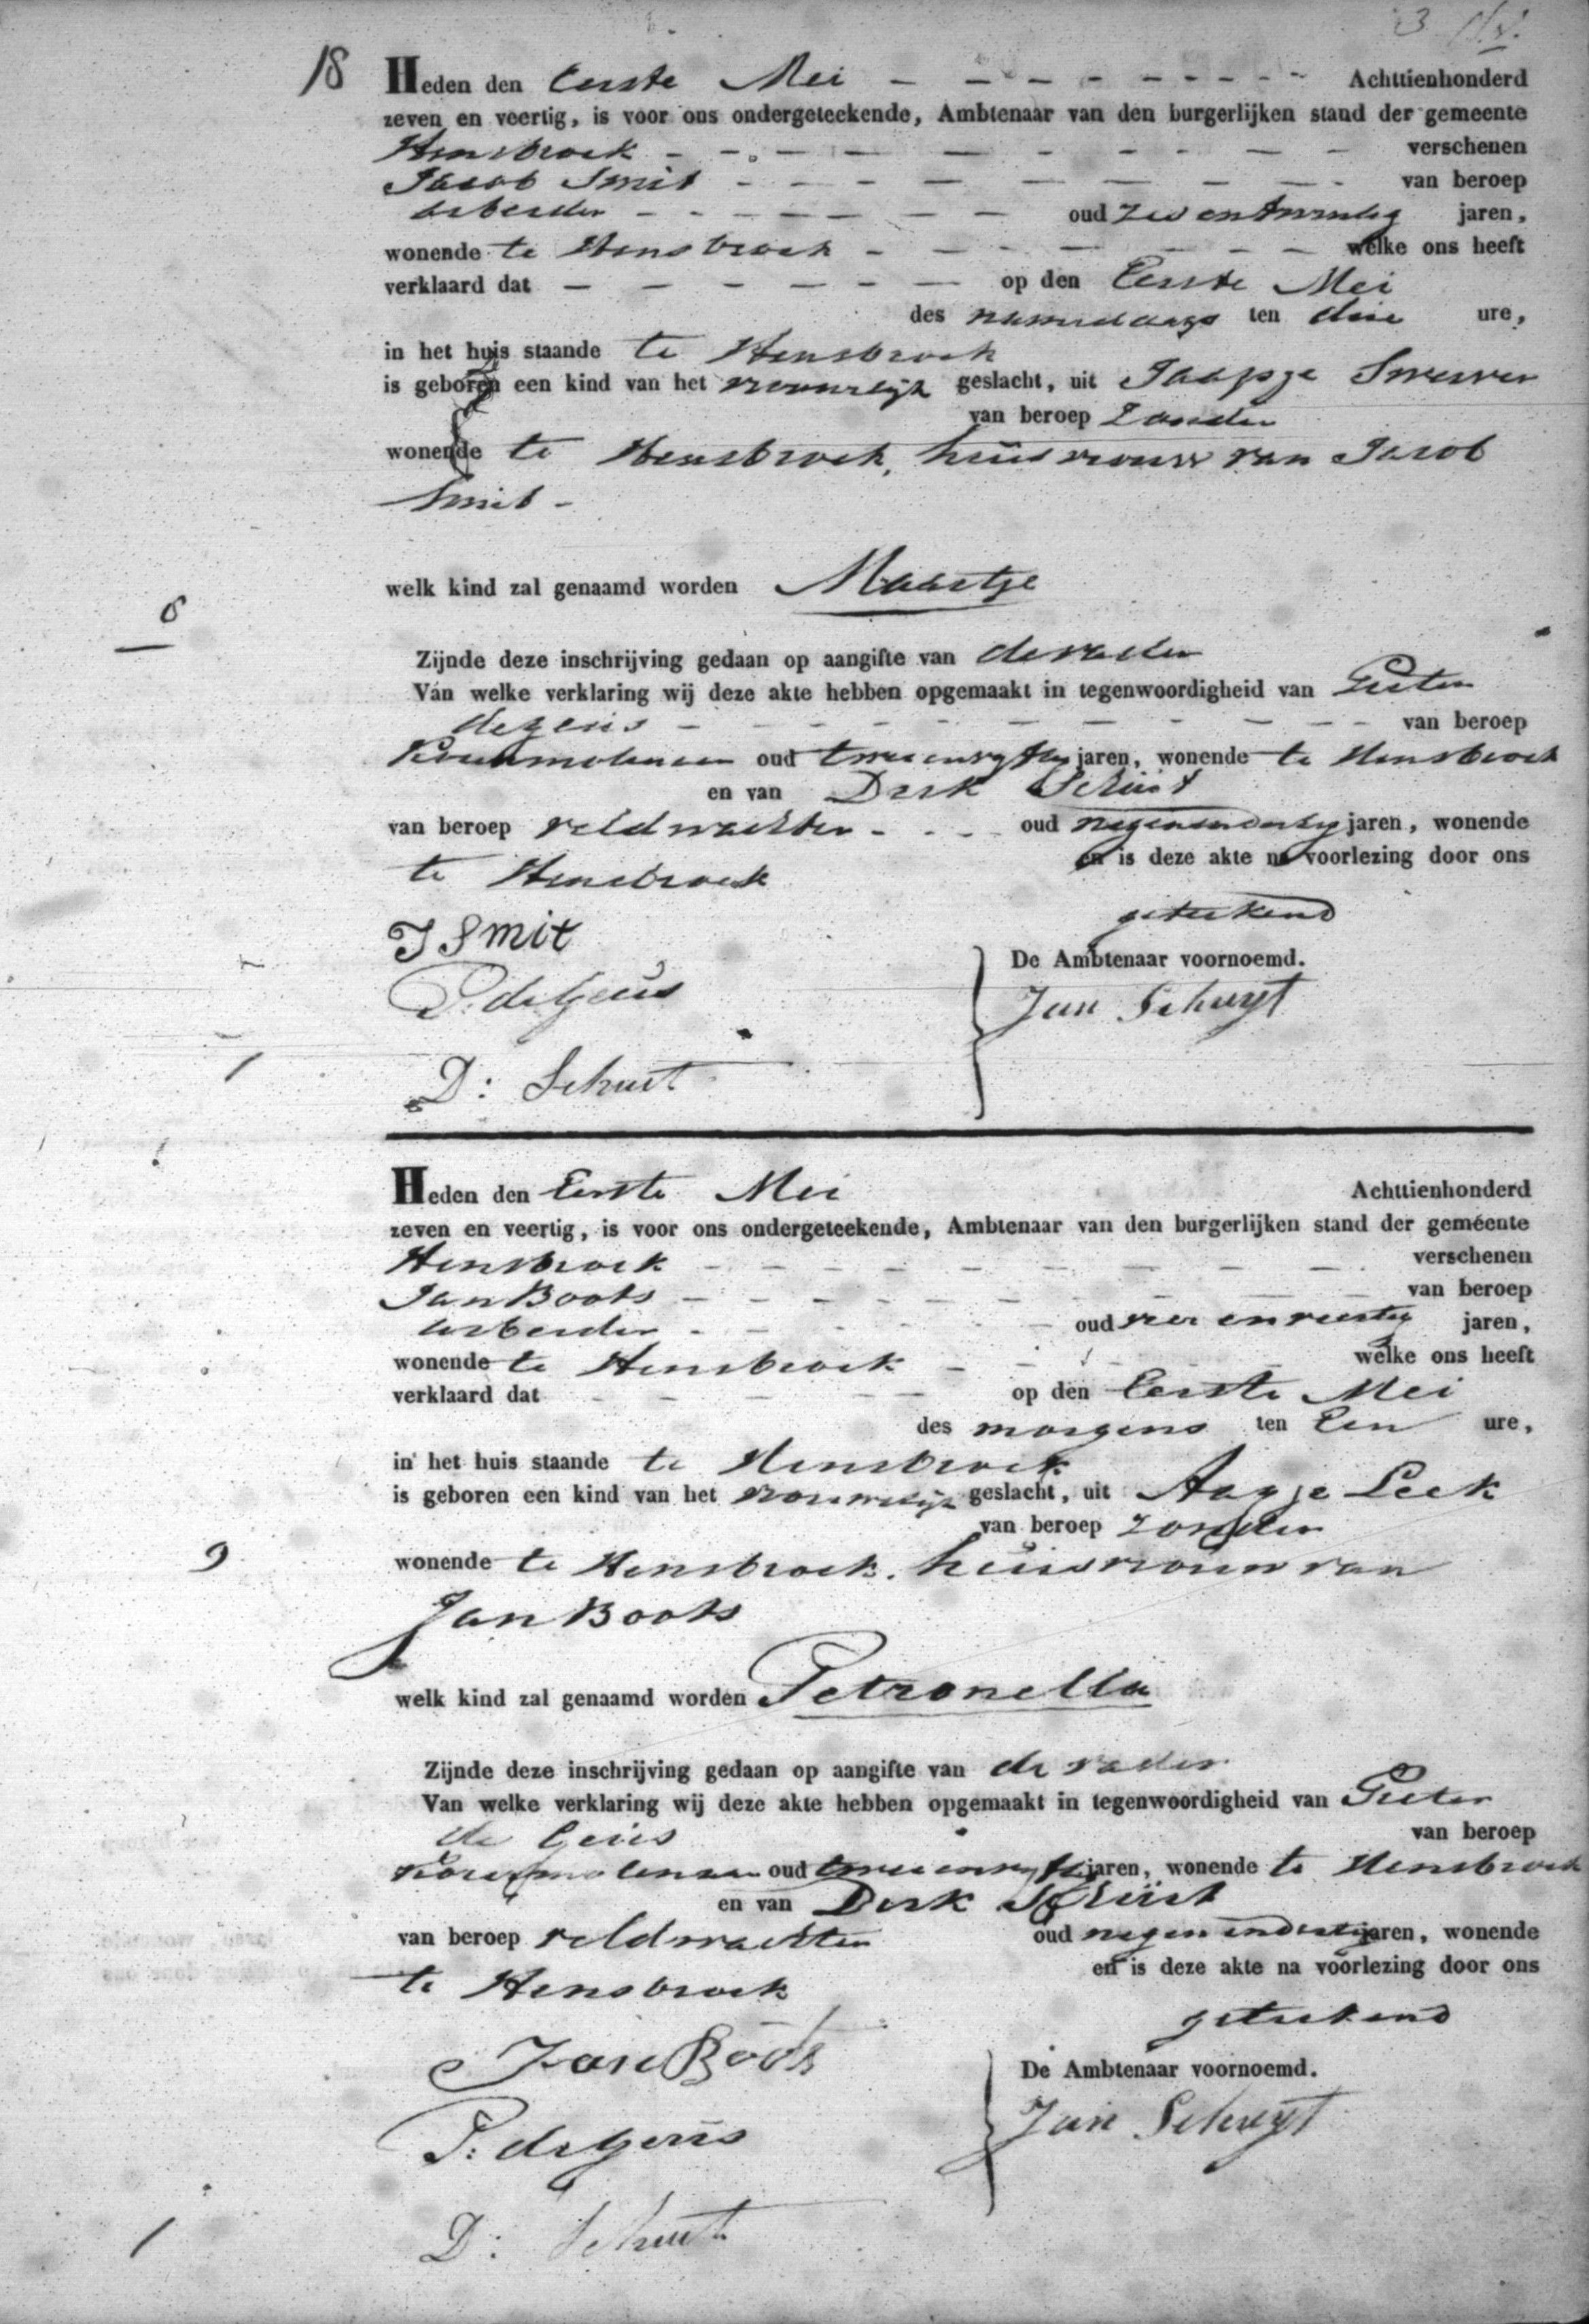 18
Heden den Eerste Mei Achttienhonderd
zeven en veertig, is voor ons ondergeteekende, Ambtenaar van den burgerlijken stand der gemeente
Hensbroek verschenen
Jacob Smit van beroep
arbeider oud jaren,
wonende te Hensbroek welke ons heeft
verklaard dat op den Eerste Mei
des namiddags ten drie ure,
in het huis staande te Hensbroek
is geboren een kind van het vrouwelijk geslacht, uit Jaapje
van beroep zonder
wonende te Hensbroek, huisvrouw van Jacob
Smit
welk kind zal genaamd worden Maartje
8
Zijnde deze inschrijving gedaan op aangifte van de vader
Van welke verklaring wij deze akte hebben opgemaakt in tegenwoordigheid van Pieter
de Geus van beroep
Korenmolenaar oud tweeenvyftig jaren, wonende te Hensbroek
en van Dirk Schuit
van beroep veldwachter oud negenendertig jaren, wonende
te Hensbroek en is deze akte na voorlezing door ons
geteekend
J Smit
De Ambtenaar voornoemd.
P. de Geus
Jan Schuyt
D: Schuit
Heden den Eerste Mei Achttienhonderd
zeven en veertig, is voor ons ondergeteekende, Ambtenaar van den burgerlijken stand der gemeente
Hensbroek verschenen
Jan Boots van beroep
arbeider oud vier en veertig jaren,
wonende te Hensbroek welke ons heeft
verklaard dat op den Eerste Mei
des morgens ten Een ure,
in het huis staande te Hensbroek
is geboren een kind van het vrouwelijk geslacht, uit Aagje Leek
van beroep zonder
9
wonende te Hensbroek, huisvrouw van
Jan Boots
welk kind zal genaamd worden Petronella
Zijnde deze inschrijving gedaan op aangifte van de vader
Van welke verklaring wij deze akte hebben opgemaakt in tegenwoordigheid van Pieter
de Geus van beroep
Korenmolenaar oud tweeenvyftig jaren, wonende te Hensbroek
en van Dirk Schuit
van beroep veldwachter oud negenendertig jaren, wonende
te Hensbroek en is deze akte na voorlezing door ons
geteekend
Jan Boots
De Ambtenaar voornoemd.
P: de Geus
Jan Schuyt
D: Schuit